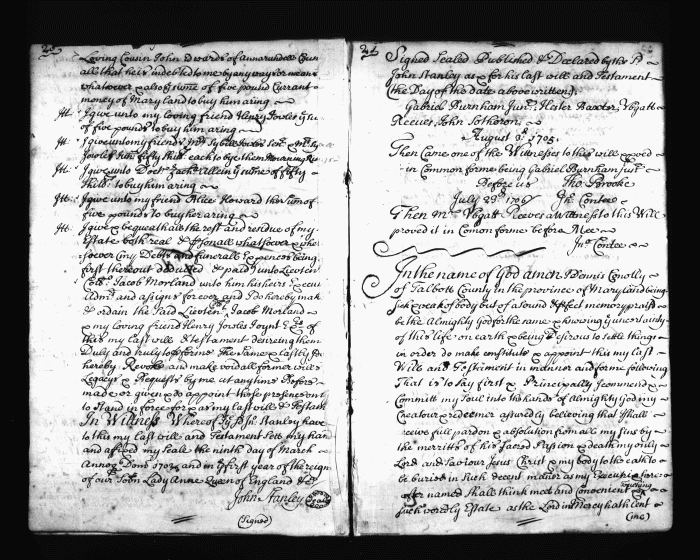 Loving Cousin John Edwards of Annarundell Coun
all that he is indebted to me by any ways or means
whatsoever & also ye sume of five pound Currant
money of Maryland to buy him a ring
Itt. I give unto my loving friend Henry Jowles ye sume
of five pounds to buy him a ring
Itt. I give unto my friends Mrs Sybill Jowles Senr & Mrs Sy
Jowles Junr fifty shill. each to bye them Mourning Rin
Itt. I give unto Doctr Zach Allein ye sume of fifty
Shill. to buy him a ring
Itt. I give unto my friend Alice Howard the sum of
five pounds to buy her a ring
Itt. I give & bequeath all the rest and residue of my
Estate both real & psonall whatsoever & whe
soever (my Debts and funerall Expences being
first thereout deducted & paid) unto Lieuten
Coll. Jacob Morland unto him his heirs Execu
Admrs and assigns for ever and I do hereby mak
& ordain the said Lieuten. Jacob Morland
& my loving friend Henry Jowles Joynt Exrs of
this my last will & testament desireing them
Duly and truly to pforme the same & lastly I do
hereby Revoke and make void all former wills
Legacys & Requests by me at any time Before
made or given & do appoint these presents on
to Stand in force for & as my last will & Testam
In Witness Whereof I ye sd Jn Stanley have
to this my last will and Testament sett my han
and affixed my seale the ninth day of March
Annoq Dom 1702/3 and in ye first year of the reign
of our Sovn Lady Anne Queen of England &c
John Stanley Seale
(Signed)
24
Signed Sealed Published & Declared by the sd
John Stanley as & for his last will and Testament
(the Day of the date above written).
Gabriel Burnham Junr. Hester Baxter, Abigall
Reeves, John Sothoron.
August 6th 1705.
Then Came one of the Wittnesses to this will & proved
in Common forme being Gabriel Burnham Junr
Before us Tho Brooke
July 29th 1706 Jn Contee
Then Mrs Abigall Reeves a Wittness to this Will
proved it in Comon forme before Mee
Jno Contee
In the name of God amen I Dennis Conolly
of Talbott County in the province of Maryland being
sick & weak of body but of a sound & pfect memory praise
be the Almighty God for the same & knowing ye uncertainty
of this life on earth & being desirous to settle things
in order do make constitute & appoint this my last
Will and Testiment in manner and forme following
That is to say first & Principally I commend &
Committ my Soul into the hands of Almighty God my
Creator & redeemer assuredly believing that I shall
receive full pardon & absolution from all my sins by
the merritts of his sacred Passion & death my only
Lord and Saviour Jesus Christ & my body to the earth to
be buried in such decent manner as my Executrix here
after named shall think meet and convenient & touching
such wordly Estate as the Lord in Mercy hath lent
(me)